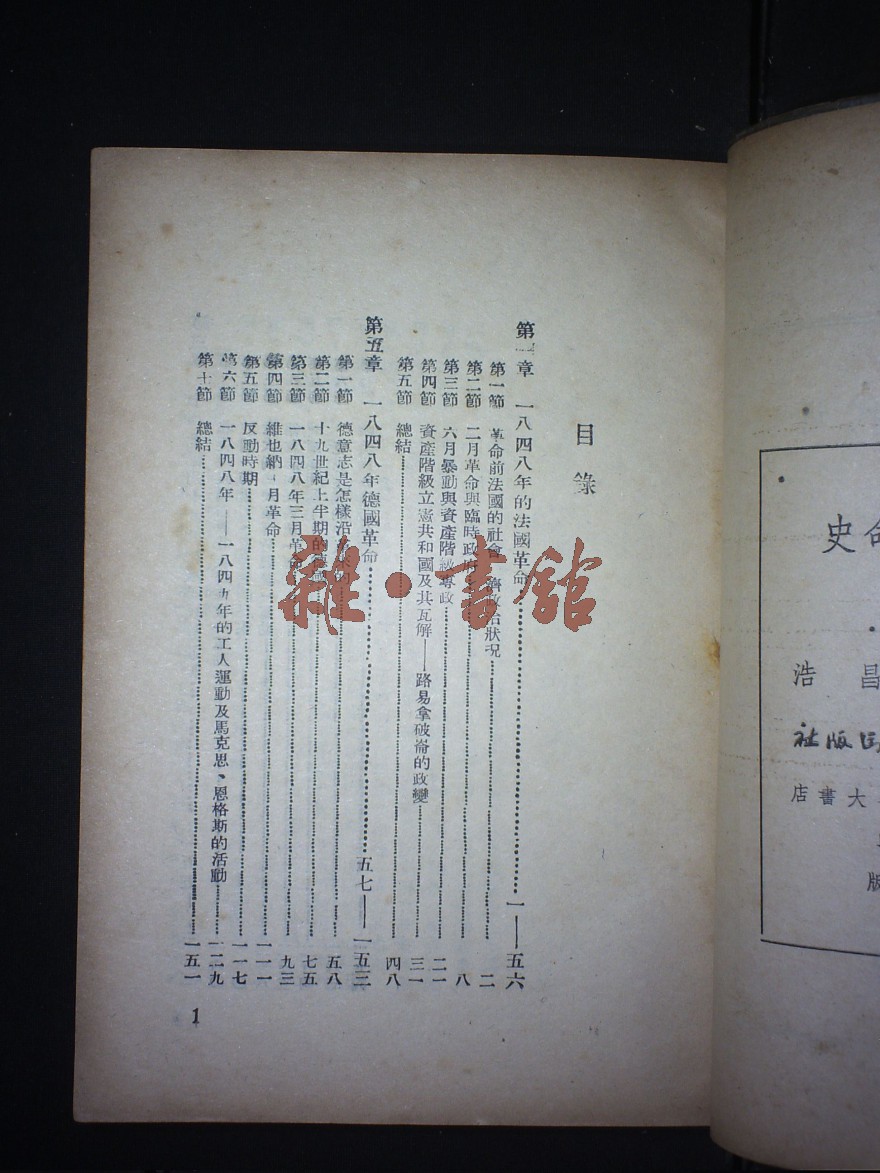 史命
昌浩
社版
大書店
版
目錄
第 章 一八四八年的法國革命……一——五六
第一節 革命前法國的社會 濟政治狀況……二
第二節 二月革命與臨時政府……八
第三節 六月暴動與資產階級專政……二一
第四節 資產階級立憲共和國及其瓦解——路易拿破崙的政變……三一
第五節 總結……四八
第五章 一八四八年德國革命……五七——一五三
第一節 德意志是怎樣沿……五八
第二節 十九世紀上半期的……七五
第三節 一八四八年三月革命……九三
第四節 維也納 月革命……一一一
第五節 反動時期……一一七
第六節 一八四八年——一八四九年的工人運動及馬克思、恩格斯的活動……一二九
第七節 總結……一五一
1
雜·書館